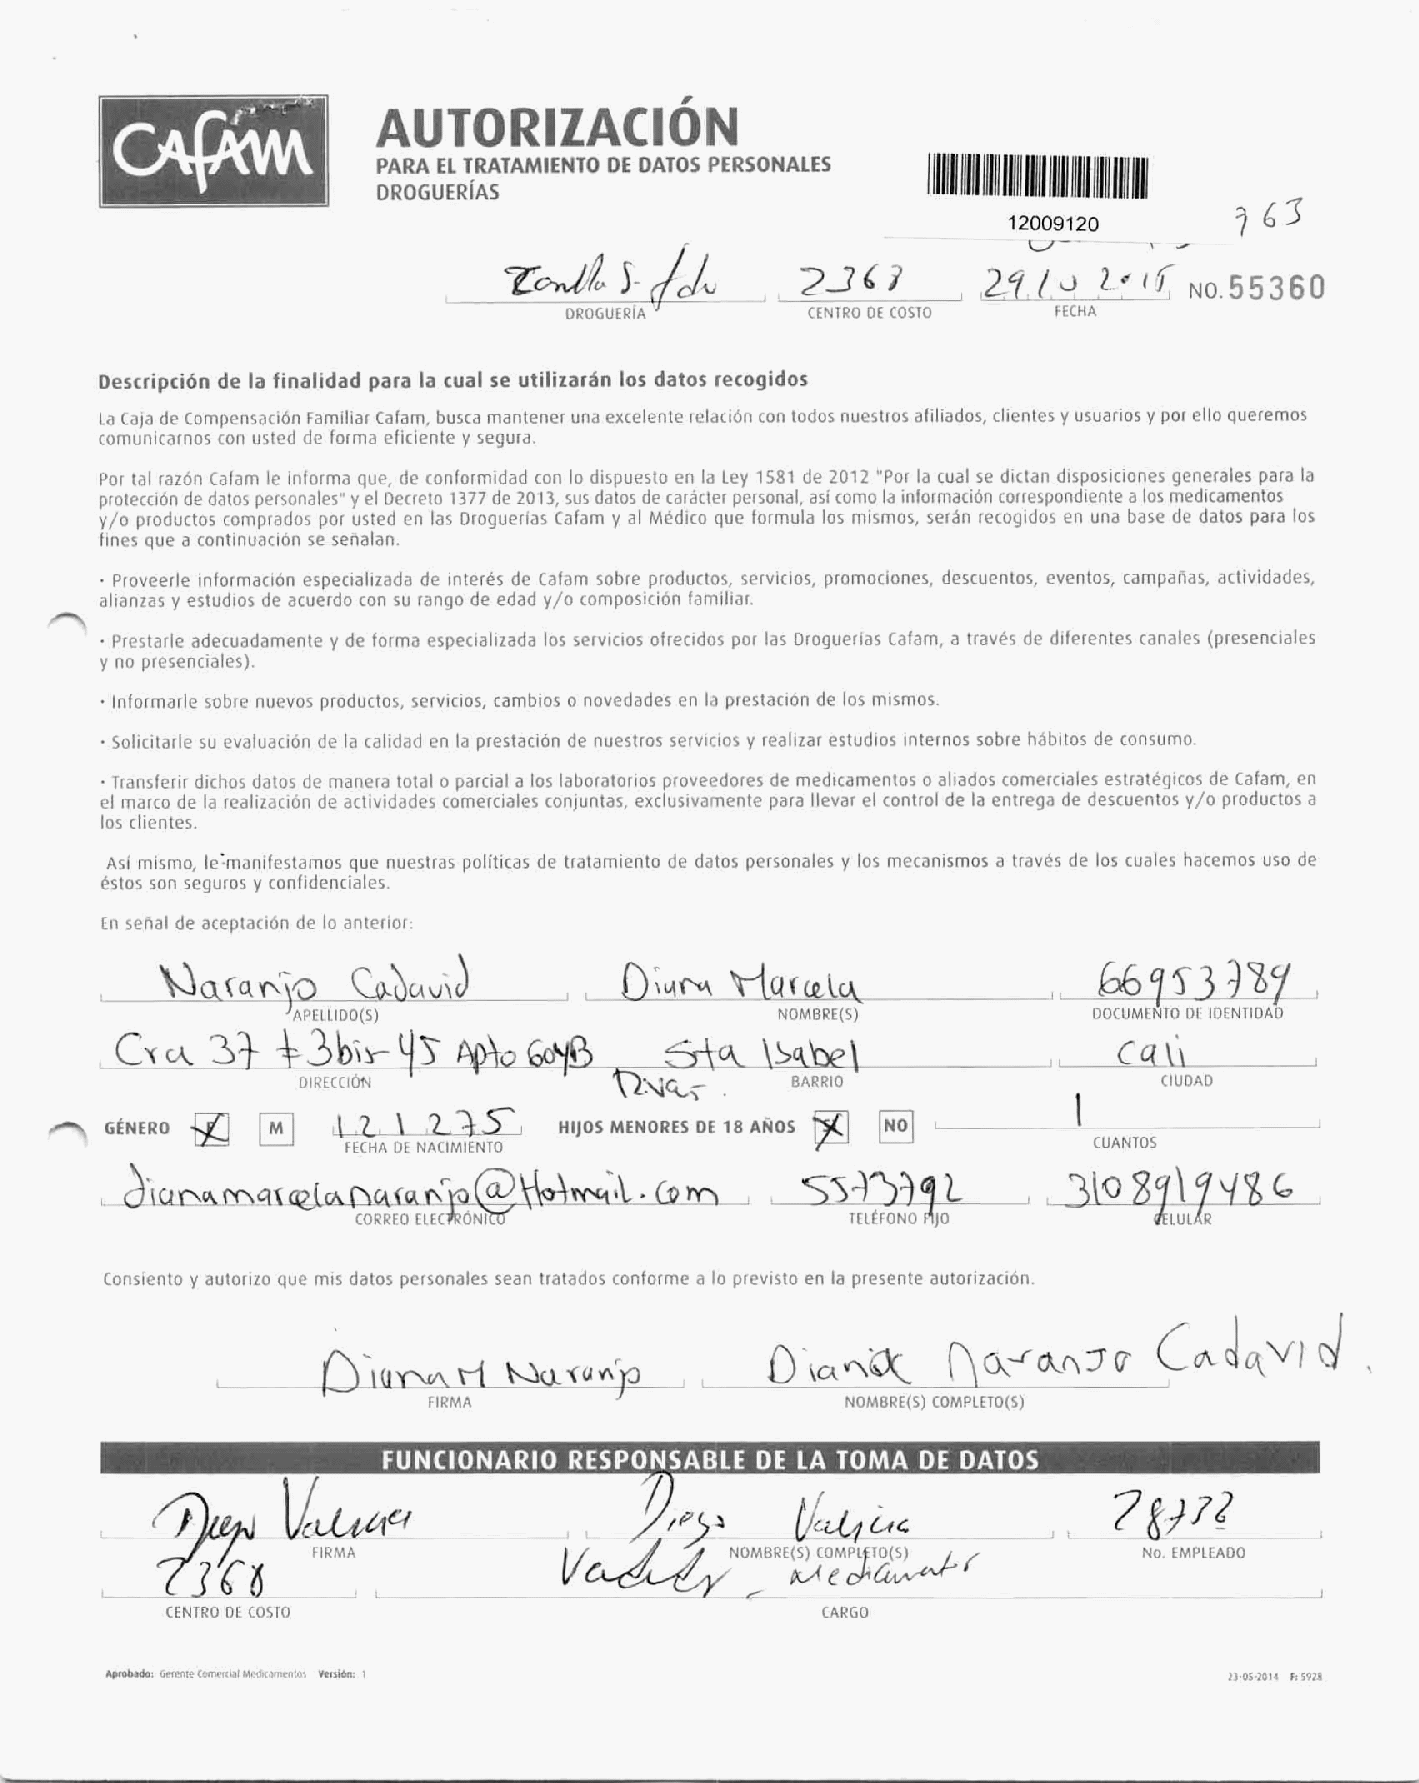 CAFAM
AUTORIZACIÓN
PARA EL TRATAMIENTO DE DATOS PERSONALES
DROGUERÍAS
12009120
763
2363 29 10 2015 NO. 55360
DROGUERÍA CENTRO DE COSTO FECHA
Descripción de la finalidad para la cual se utilizarán los datos recogidos
La Caja de Compensación Familiar Cafam, busca mantener una excelente relación con todos nuestros afiliados, clientes y usuarios y por ello queremos
comunicarnos con usted de forma eficiente y segura.
Por tal razón Cafam le informa que, de conformidad con lo dispuesto en la Ley 1581 de 2012 "Por la cual se dictan disposiciones generales para la
protección de datos personales" y el Decreto 1377 de 2013, sus datos de carácter personal, así como la información correspondiente a los medicamentos
y/o productos comprados por usted en las Droguerías Cafam y al Médico que formula los mismos, serán recogidos en una base de datos para los
fines que a continuación se señalan.
· Proveerle información especializada de interés de Cafam sobre productos, servicios, promociones, descuentos, eventos, campañas, actividades,
alianzas y estudios de acuerdo con su rango de edad y/o composición familiar.
· Prestarle adecuadamente y de forma especializada los servicios ofrecidos por las Droguerías Cafam, a través de diferentes canales (presenciales
y no presenciales).
· Informarle sobre nuevos productos, servicios, cambios o novedades en la prestación de los mismos.
· Solicitarle su evaluación de la calidad en la prestación de nuestros servicios y realizar estudios internos sobre hábitos de consumo.
· Transferir dichos datos de manera total o parcial a los laboratorios proveedores de medicamentos o aliados comerciales estratégicos de Cafam, en
el marco de la realización de actividades comerciales conjuntas, exclusivamente para llevar el control de la entrega de descuentos y/o productos a
los clientes.
Así mismo, le manifestamos que nuestras políticas de tratamiento de datos personales y los mecanismos a través de los cuales hacemos uso de
éstos son seguros y confidenciales.
En señal de aceptación de lo anterior:
Naranjo Cadavid Diana Marcela 66953789
APELLIDO(S) NOMBRE(S) DOCUMENTO DE IDENTIDAD
Cra 37 # 3bis-45 Apto 604B Sta Isabel Cali
DIRECCIÓN BARRIO CIUDAD
GÉNERO F M 12 12 75 HIJOS MENORES DE 18 AÑOS NO 1
FECHA DE NACIMIENTO CUANTOS
dianamarcelanaranjo@Hotmail.com 5573792 3108919486
CORREO ELECTRÓNICO TELÉFONO FIJO CELULAR
Consiento y autorizo que mis datos personales sean tratados conforme a lo previsto en la presente autorización.
Diana M Naranjo Diana Naranjo Cadavid.
FIRMA NOMBRE(S) COMPLETO(S)
FUNCIONARIO RESPONSABLE DE LA TOMA DE DATOS
Diego Valencia 28732
FIRMA NOMBRE(S) COMPLETO(S) No. EMPLEADO
2368
CENTRO DE COSTO CARGO
Aprobado: Gerente Comercial Medicamentos Versión: 1 23-05-2014 F: 5928